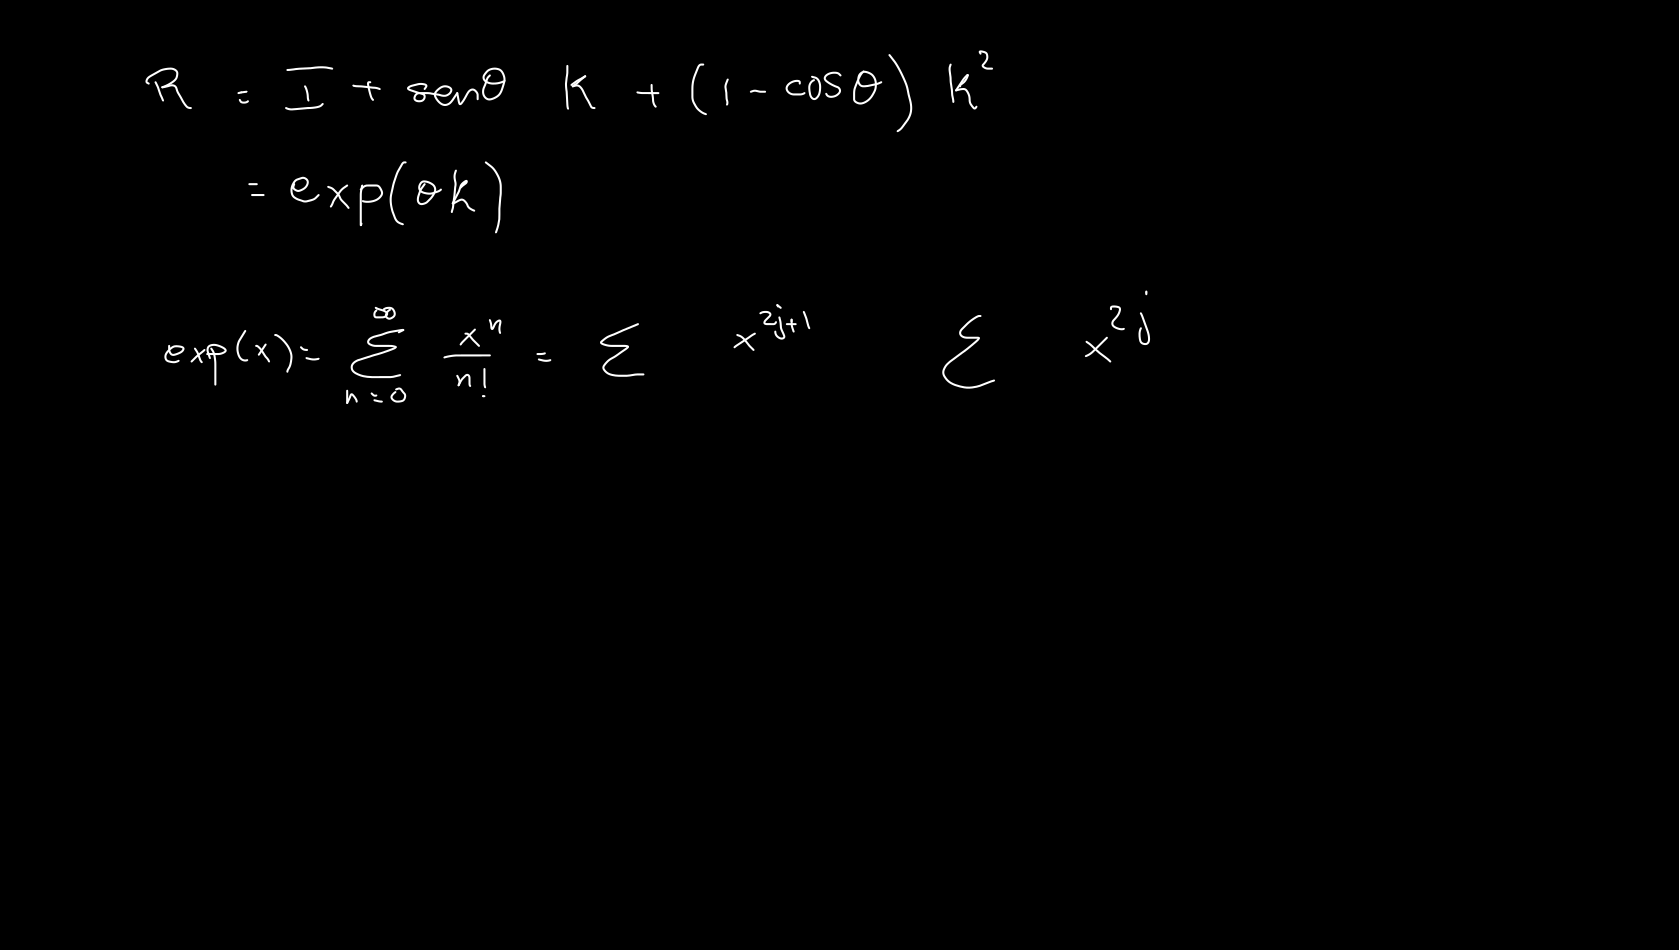 R = I + senθ K + (1 - cosθ) K²
= exp(θK)
exp(x) = ∑_{n=0}^{∞} xⁿ/n! = ∑ x^{2j+1} ∑ x^{2j}